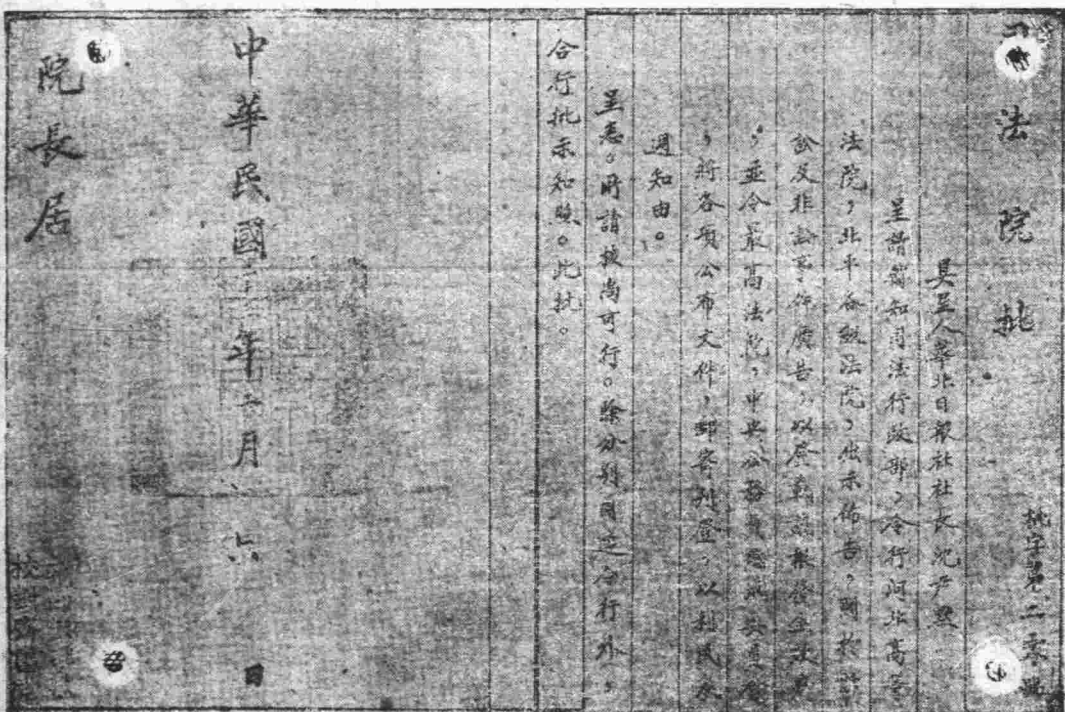 司法院批
批字第二零號
具呈人華北日報社社長沈尹默
呈請飭知司法行政部,令行河北高等
法院,北平各級法院,出示佈告,關於訴
訟及非訟事件廣告,以登載該報發生效力
,並令最高法院,中央公務員懲戒委員會
,將各項公布文件,郵寄刊登,以利民衆
週知由。
呈悉。所請披尚可行。除分別函達令行外,
合行批示知照。此批。
中華民國二十二年二月六日
院長居
校對